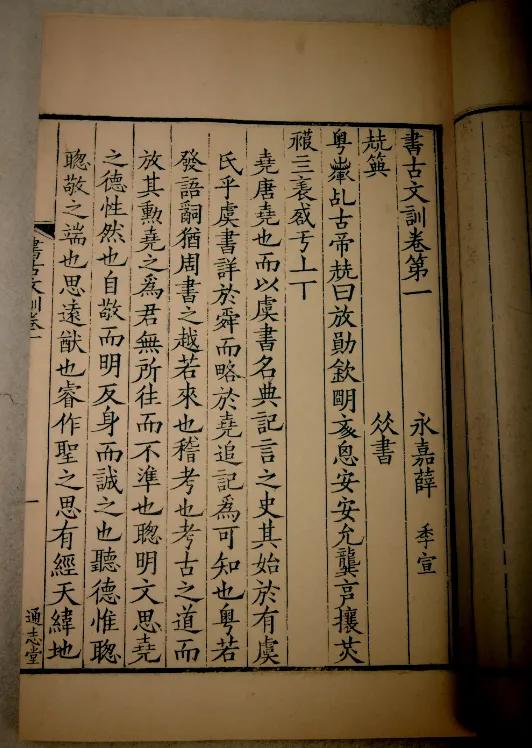 書古文訓卷第一　永嘉薛　季宣
書
粤乩古帝曰放勛欽朙恖安安允龔攘炗
亖亏上丅
堯唐堯也而以虞書名典記言之史其始於有虞
氏乎虞書詳於舜而略於堯追記爲可知也粤若
發語辭猶周書之越若來也稽考也考古之道而
放其勲堯之爲君無所往而不準也聦明文思堯
之德性然也自敬而明反身而誠之也聽德惟聦
聦敬之端也思遠猷也睿作聖之思有經天緯地
書古文訓卷一
一
通志堂